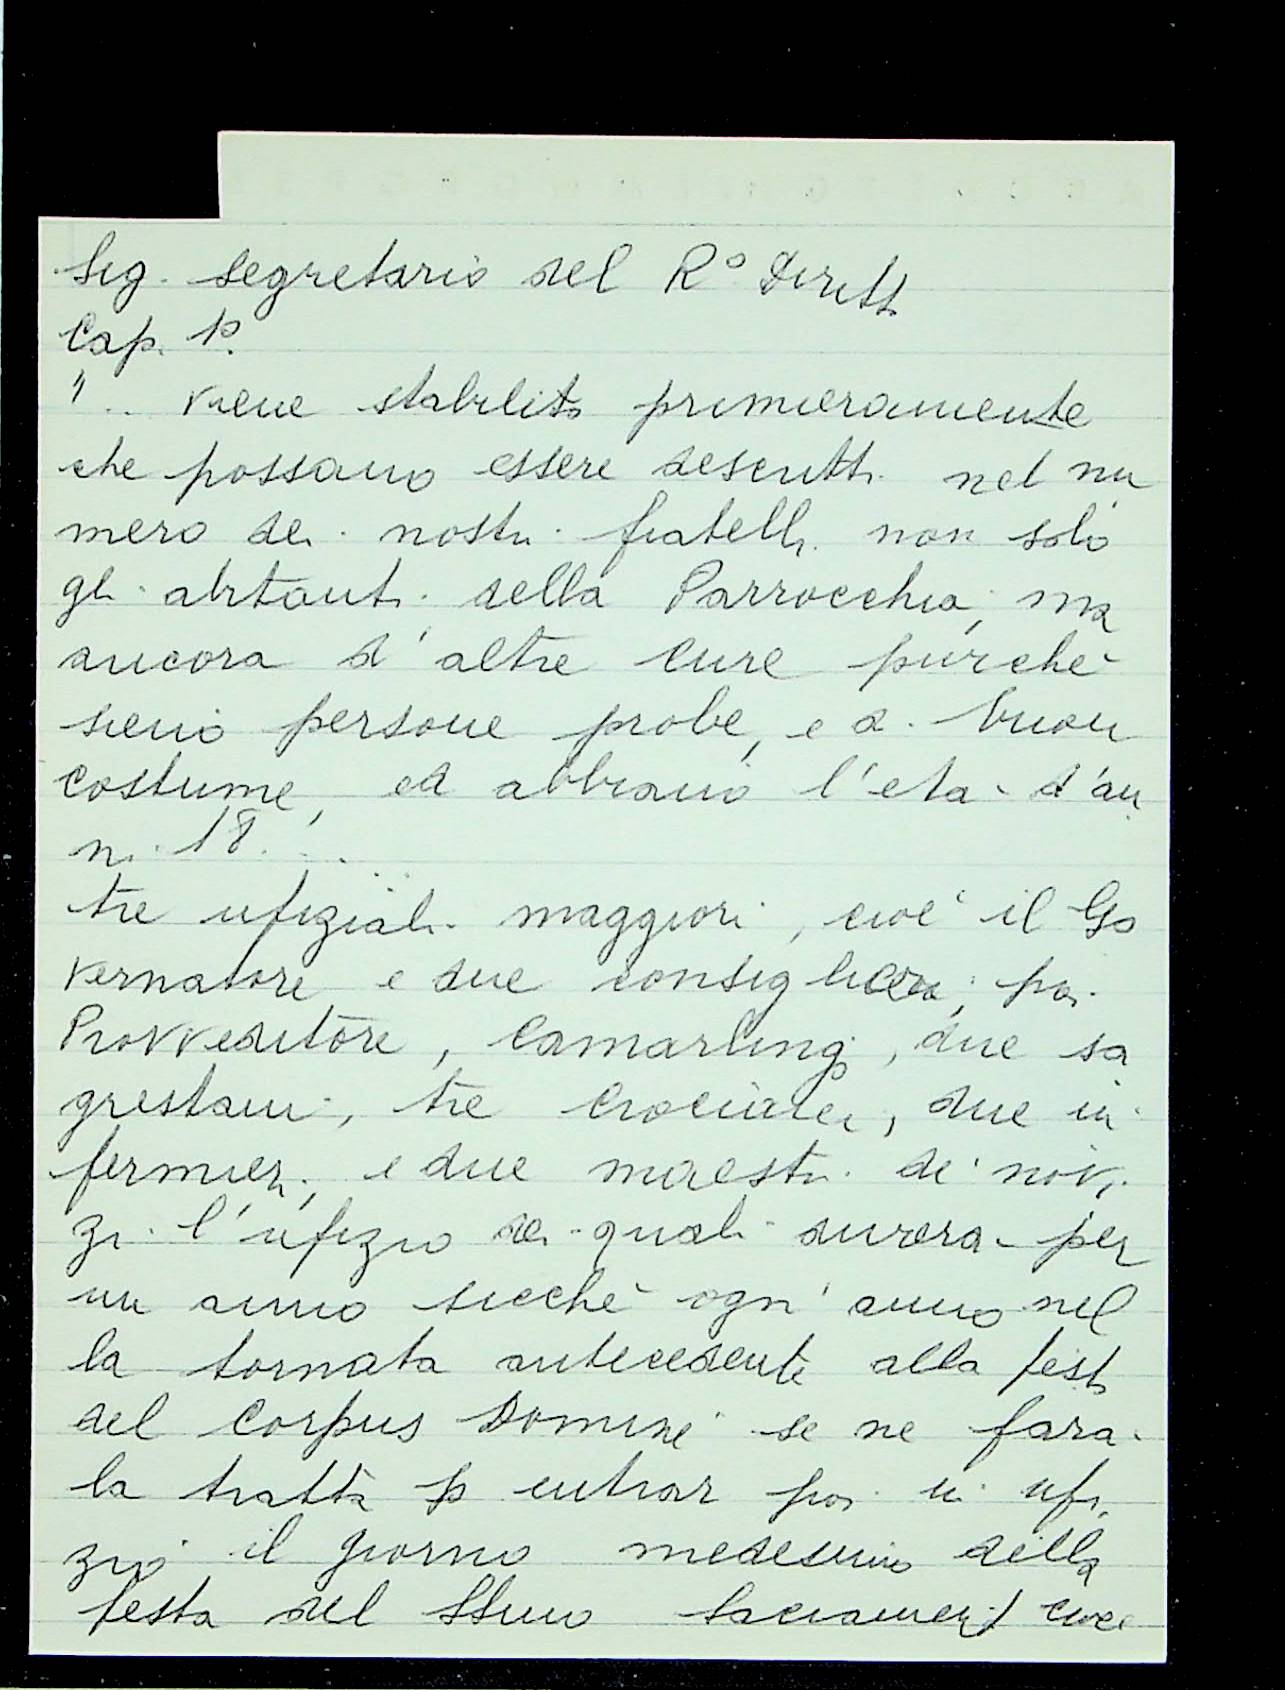 Sig. Segretario del R° Diritt
Cap. 1°.
".. viene stabilito primieramente
che possano essere descritti nel nu
mero dei nostri fratelli non solo
gli abitanti della Parrocchia, ma
ancora d'altre cure purchè
sieno persone probe, e di buon
costume, ed abbiano l'età d'an
ni 18...
tre ufiziali maggiori, cioè il Go
vernatore e due consiglieri, poi
Provveditore, Camarlingo, due sa
grestani, tre crociferi, due in
fermieri, e due maestri de' novi
zi l'ufizio dei quali durerà per
un anno sicchè ogn'anno nel
la tornata antecedente alla festa
del Corpus Domini se ne farà
la tratta p entrar poi in ufi
zio il giorno medesimo della
festa del SSmo Sacrament cioè